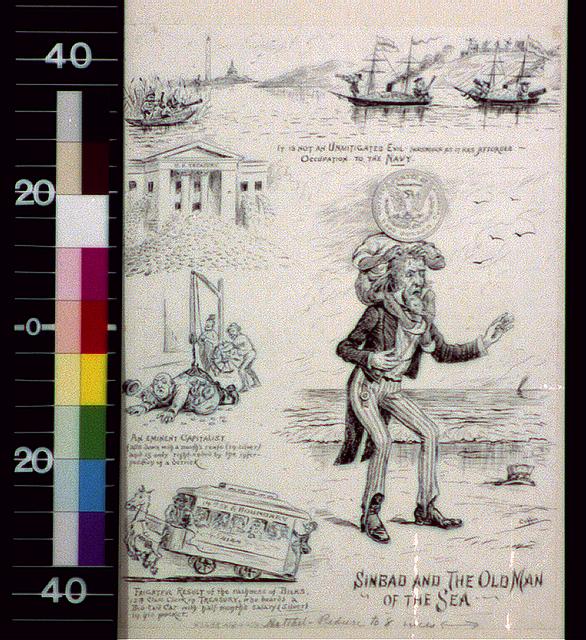 40
20
0
20
40
IT IS NOT AN UNMITIGATED EVIL INASMUCH AS IT HAS AFFORDED
OCCUPATION TO THE NAVY.
U.S. TREASURY
AN EMINENT CAPITALIST
falls down with a month's rents (in silver)
and is only righted by the
of a derrick
FRIGHTFUL RESULT of the rashness of BILKS,
Clerk in TREASURY, who boards a
Bob tail Car with half month's salary (Silver)
in his pocket.
SINBAD AND THE OLD MAN
OF THE SEA
Reduce to 8 inches